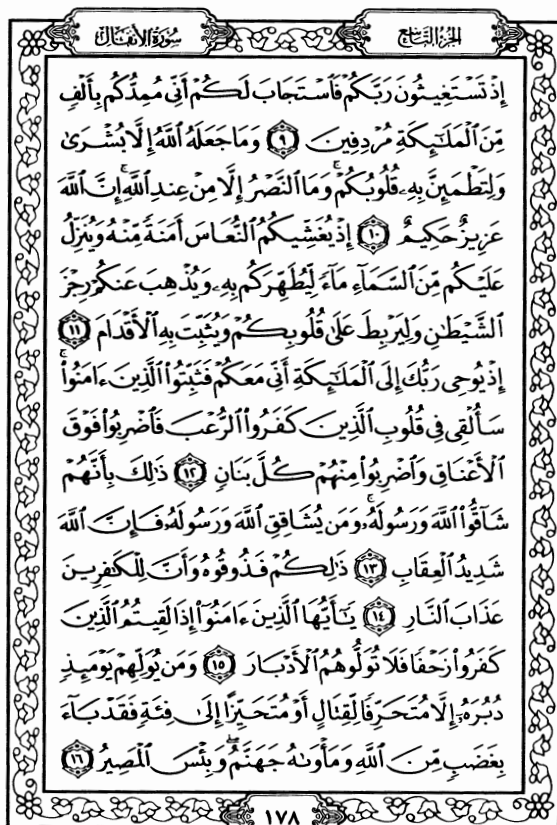 سُورَةُ الأَنْفَالِ
الجُزْءُ التَّاسِعُ
إِذْ تَسْتَغِيثُونَ رَبَّكُمْ فَاسْتَجَابَ لَكُمْ أَنِّي مُمِدُّكُم بِأَلْفٍ
مِّنَ الْمَلَٰٓئِكَةِ مُرْدِفِينَ ۝٩ وَمَا جَعَلَهُ اللَّهُ إِلَّا بُشْرَىٰ
وَلِتَطْمَئِنَّ بِهِۦ قُلُوبُكُمْ ۚ وَمَا النَّصْرُ إِلَّا مِنْ عِندِ اللَّهِ ۚ إِنَّ اللَّهَ
عَزِيزٌ حَكِيمٌ ۝١٠ إِذْ يُغَشِّيكُمُ النُّعَاسَ أَمَنَةً مِّنْهُ وَيُنَزِّلُ
عَلَيْكُم مِّنَ السَّمَآءِ مَآءً لِّيُطَهِّرَكُم بِهِۦ وَيُذْهِبَ عَنكُمْ رِجْزَ
الشَّيْطَٰنِ وَلِيَرْبِطَ عَلَىٰ قُلُوبِكُمْ وَيُثَبِّتَ بِهِ الْأَقْدَامَ ۝١١
إِذْ يُوحِي رَبُّكَ إِلَى الْمَلَٰٓئِكَةِ أَنِّي مَعَكُمْ فَثَبِّتُوا الَّذِينَ ءَامَنُوا ۚ
سَأُلْقِي فِي قُلُوبِ الَّذِينَ كَفَرُوا الرُّعْبَ فَاضْرِبُوا فَوْقَ
الْأَعْنَاقِ وَاضْرِبُوا مِنْهُمْ كُلَّ بَنَانٍ ۝١٢ ذَٰلِكَ بِأَنَّهُمْ
شَآقُّوا اللَّهَ وَرَسُولَهُۥ ۚ وَمَن يُشَاقِقِ اللَّهَ وَرَسُولَهُۥ فَإِنَّ اللَّهَ
شَدِيدُ الْعِقَابِ ۝١٣ ذَٰلِكُمْ فَذُوقُوهُ وَأَنَّ لِلْكَٰفِرِينَ
عَذَابَ النَّارِ ۝١٤ يَٰٓأَيُّهَا الَّذِينَ ءَامَنُوٓا إِذَا لَقِيتُمُ الَّذِينَ
كَفَرُوا زَحْفًا فَلَا تُوَلُّوهُمُ الْأَدْبَارَ ۝١٥ وَمَن يُوَلِّهِمْ يَوْمَئِذٍ
دُبُرَهُۥٓ إِلَّا مُتَحَرِّفًا لِّقِتَالٍ أَوْ مُتَحَيِّزًا إِلَىٰ فِئَةٍ فَقَدْ بَآءَ
بِغَضَبٍ مِّنَ اللَّهِ وَمَأْوَىٰهُ جَهَنَّمُ ۖ وَبِئْسَ الْمَصِيرُ ۝١٦
١٧٨